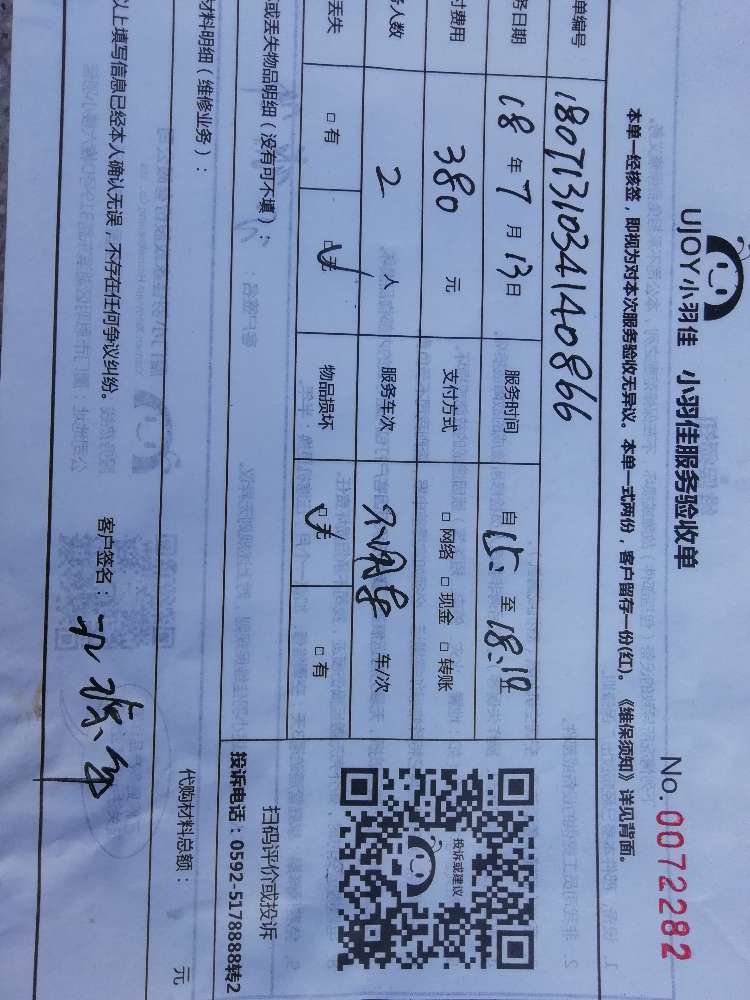 UJOY小羽佳 小羽佳服务验收单
No. 0072282
本单一经核签，即视为对本次服务验收无异议。本单一式两份，客户留存一份(红)。《维保须知》详见背面。
单编号 1807131034140866
务日期 18 年 7 月 13 日 服务时间 自 15: 至 18:
付费用 380 元 支付方式 □ 网络 □ 现金 □ 转账
务人数 2 人 服务车次 不用车 车/次
丢失 □ 有 □ 无 物品损坏 □ 无 □ 有
投诉或建议
扫码评价或投诉
投诉电话：0592-5178888转2
或丢失物品明细（没有可不填）：
材料明细（维修业务）：
代购材料总额： 元
以上填写信息已经本人确认无误，不存在任何争议纠纷。 客户签名：